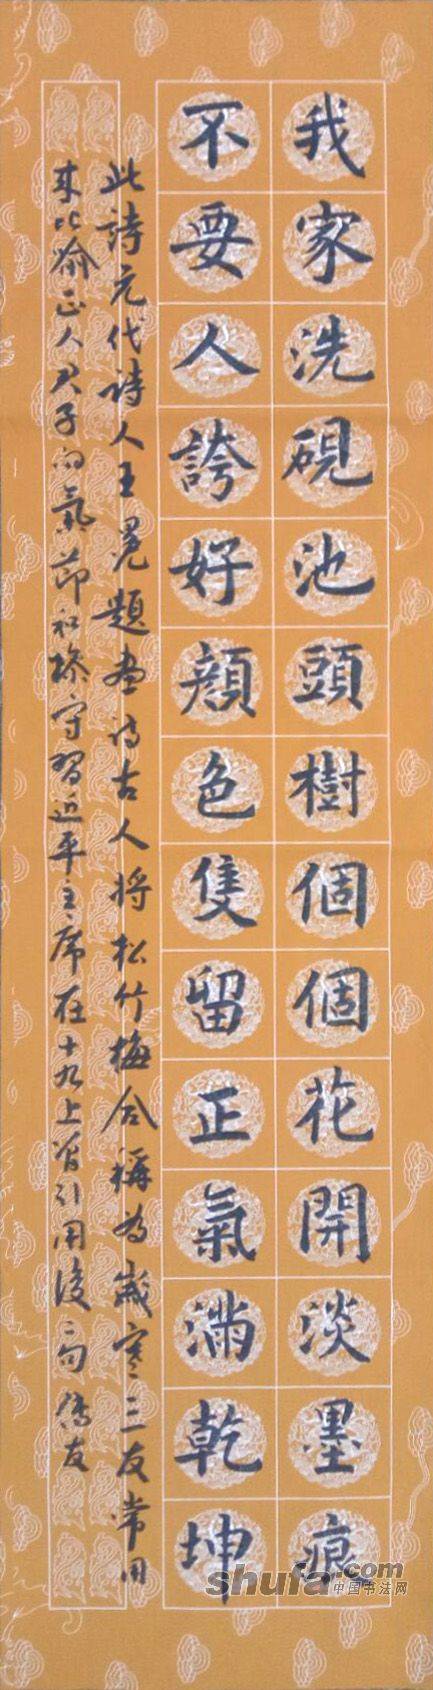 我家洗硯池頭樹個個花開淡墨痕
不要人誇好顔色隻留正氣滿乾坤
此詩元代詩人王冕題畫诗古人将松竹梅合稱為歲寒三友常用
来比喻正人君子的氣節和操守習近平主席在十九上曾引用後二句
shufa.com
中国书法网